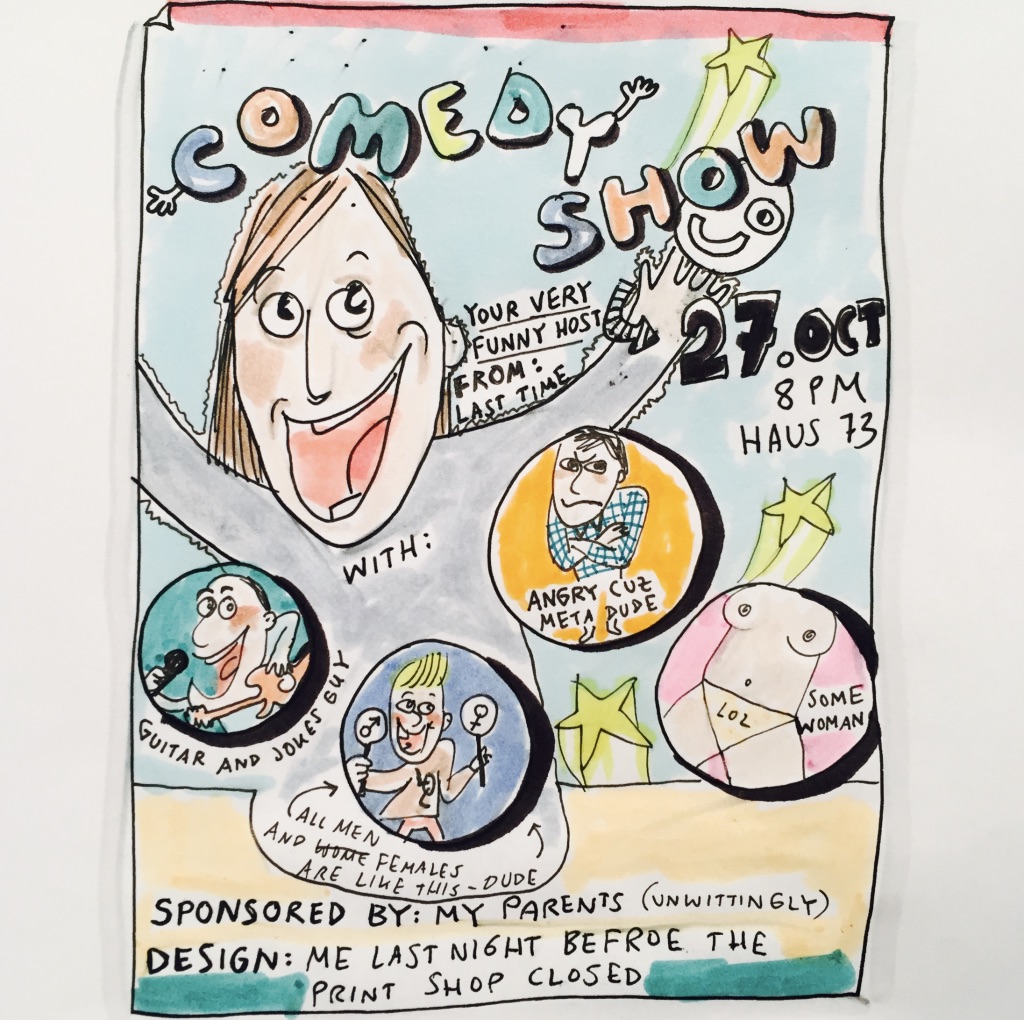 COMEDY
SHOW
YOUR VERY
FUNNY HOST
FROM:
LAST TIME
27.OCT
8 PM
HAUS 73
WITH:
ANGRY CUZ
META DUDE
GUITAR AND JOKES GUY
LOL
SOME
WOMAN
ALL MEN
AND FEMALES
ARE LIKE THIS - DUDE
SPONSORED BY: MY PARENTS (UNWITTINGLY)
DESIGN: ME LAST NIGHT BEFROE THE
PRINT SHOP CLOSED